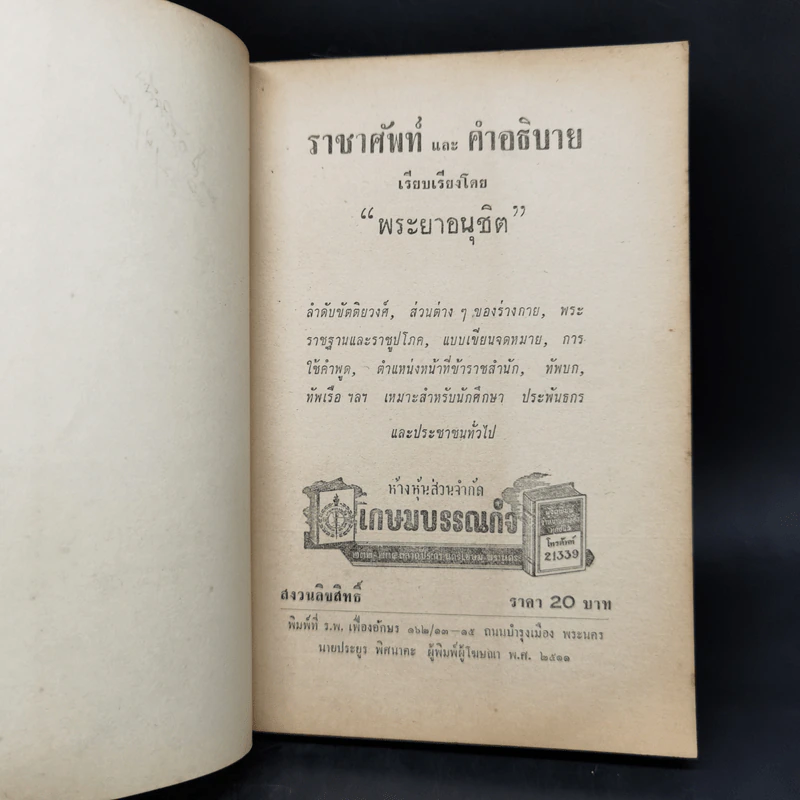 ราชาศัพท์ และ คำอธิบาย
เรียบเรียงโดย
“พระยาอนุชิต”
ลำดับขัตติยวงศ์, ส่วนต่าง ๆ ของร่างกาย, พระ
ราชฐานและราชูปโภค, แบบเขียนจดหมาย, การ
ใช้คำพูด, ตำแหน่งหน้าที่ข้าราชสำนัก, ทัพบก,
ทัพเรือ ฯลฯ เหมาะสำหรับนักศึกษา ประพันธกร
และประชาชนทั่วไป
ห้างหุ้นส่วนจำกัด
เกษมบรรณกิจ
โทรศัพท์
21339
สงวนลิขสิทธิ์ ราคา 20 บาท
พิมพ์ที่ ร.พ. เฟื่องอักษร ๑๖๒/๑๓—๑๕ ถนนบำรุงเมือง พระนคร
นายประยูร พิศนาคะ ผู้พิมพ์ผู้โฆษณา พ.ศ. ๒๕๑๑